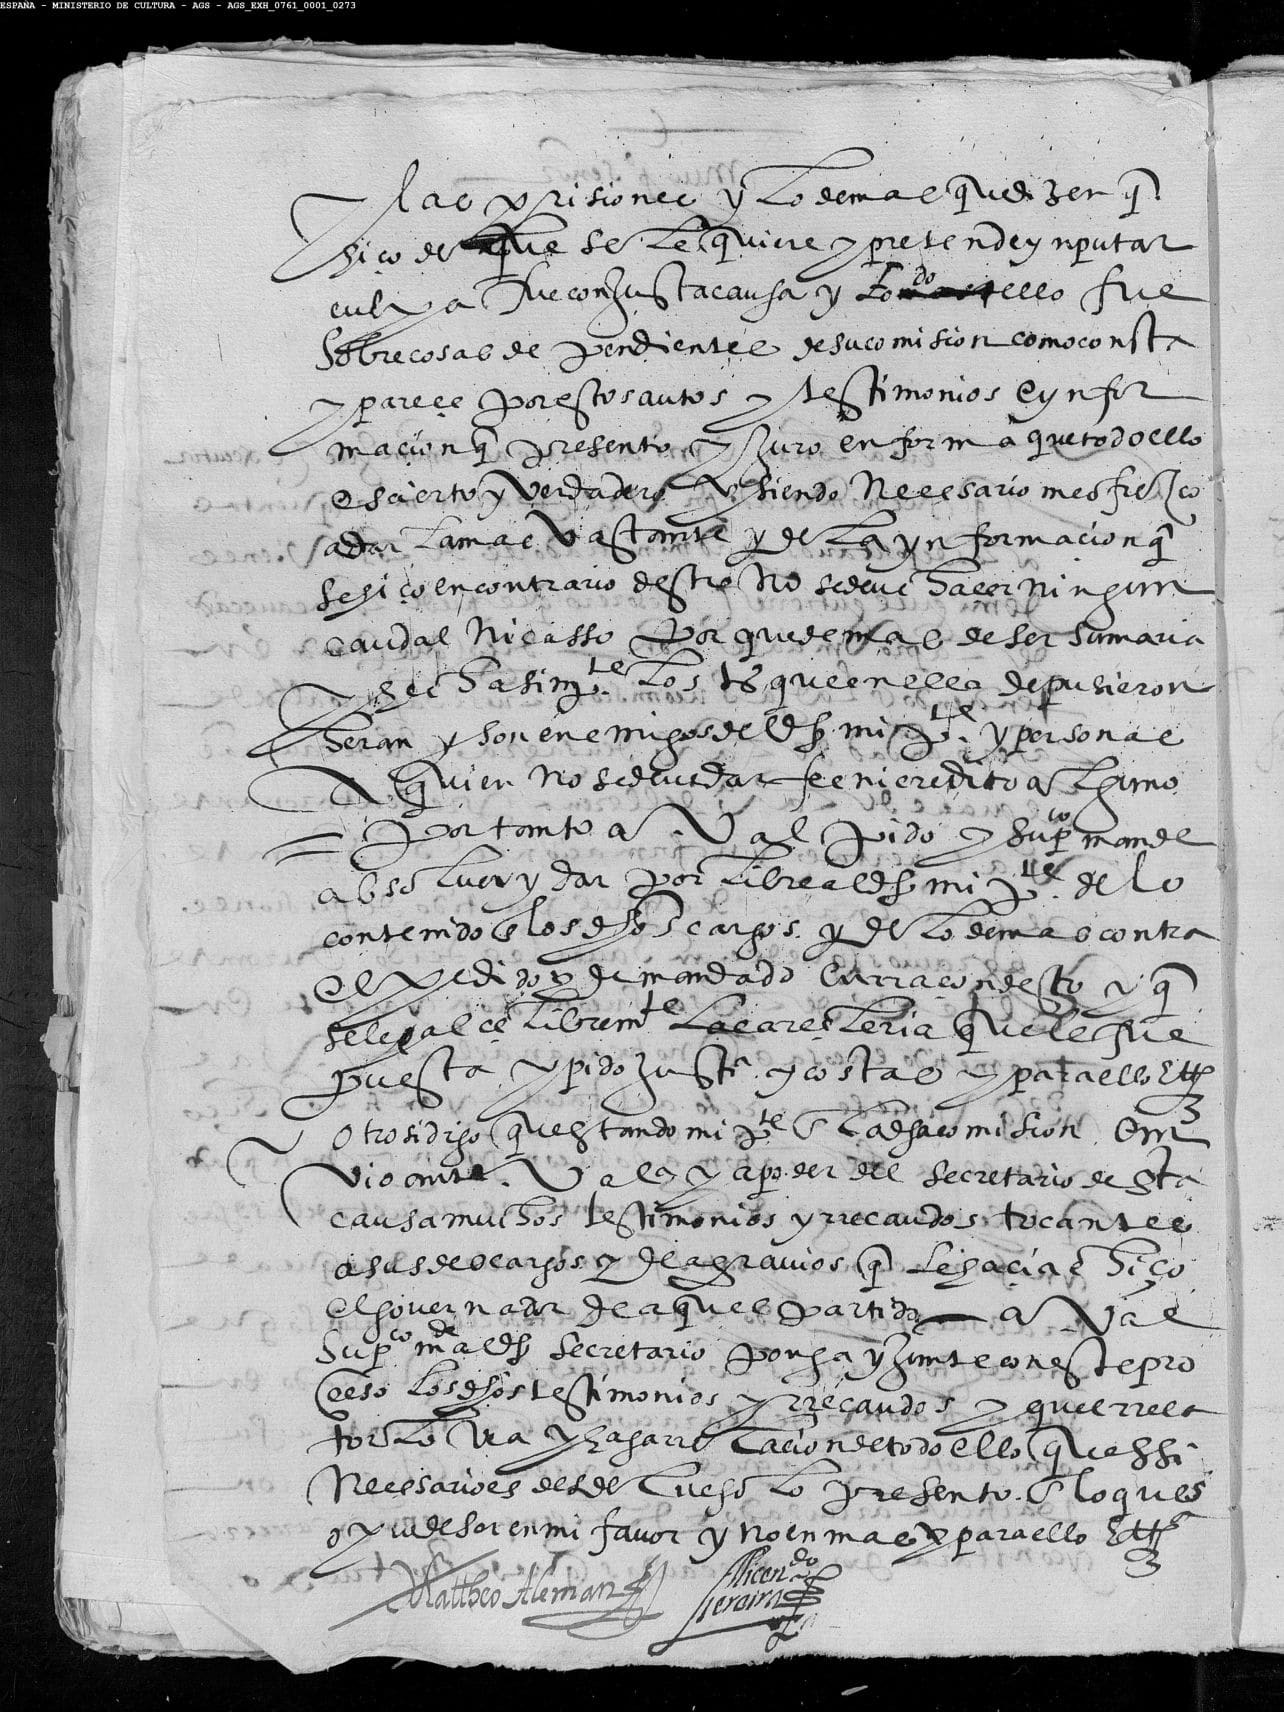 ESPAÑA - MINISTERIO DE CULTURA - AGS - AGS_EXH_0761_0001_0273
y las prisiones y lo demas que dizen q̃
hiço de que se le quiere y pretende ynputar
culpa fue con justa causa y todo ello fue
sobre cosas dependientes de su comision como consta
y pareçe por estos autos y testimonios e ynfor
maçion q̃ presento y juro en forma que todo ello
es çierto y verdadero y siendo neçesario me ofrezco
a dar la mas vastante y de la ynformaçion q̃
se hiço en contrario desto no se deve hacer ningun
caudal ni casso por que demas de ser sumaria
y hecha sin p.te los ts que en ella depusieron
heran y son enemigos del dho mi p.te y personas
a quien no se deve dar fee ni credito alguno
= por tanto a V al pido y sup.co mande
absolver y dar por libre al dho mi p.te de lo
contenido e los dhos cargos y de lo demas contra
el pedido y demandado en raçon desto y q̃
se le alçe librem.te la carçeleria que le fue
puesta y pido justi.a y costas y para ello etta
otrosi digo que estando mi p.te e la dha comision en
vio ante V al.a y a poder del secretario desta
causa muchos testimonios y rrecaudos tocantes
a sus descargos y de agravios q̃ le haçia e hiço
el governador de aquel partido a V al
sup.co m.de al dho secretario ponga y junte con este pro
ceso los dhos testimonios y rrecaudos y que el rrela
tor lo vea y haga rrelaçion de todo ello que si
neçesario es desde luego lo presento e lo que es
o pudese ser en mi favor y no en mas y para ello etta
Mattheo Aleman